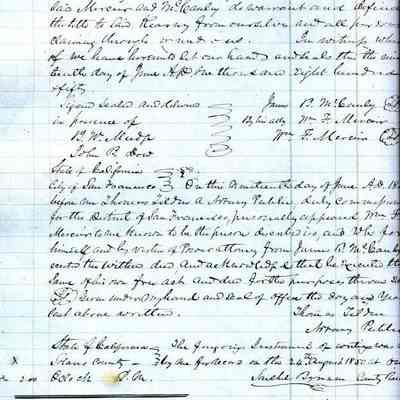 said Mercier and McCauly do warrant and defend
the title to said Kearny from ourselves and all persons
claiming through or under us. In witness whe
of we have hereunto set our hands and seals this the nin
teenth day of June A.D. One thousand eight hundred
& fifty
Signed Sealed and delivered James B. McCauly
in presence of By his atty Wm F. Mercier
B. W. Mudge Wm F. Mercier
John B. Dow
State of California
City of San Francisco On this Nineteenth day of June A.D. 18
before me Thomas Tilden a Notary Public duly commission
for the District of San Francisco, personally appeared Wm F.
Mercier to me known to be the person described in, and who for
himself and by virtue of Power attorney from James B. McCauly
the within deed and acknowledged that he executed the
same of his own free act and deed for the purposes therein
Given under my hand and seal of office the day and Year
last above written. Thomas Tilden
Notary Public
State of California The foregoing Instrument of writing was
County by me on the 24th August 1850 at
x 200 O'clock P.M. County